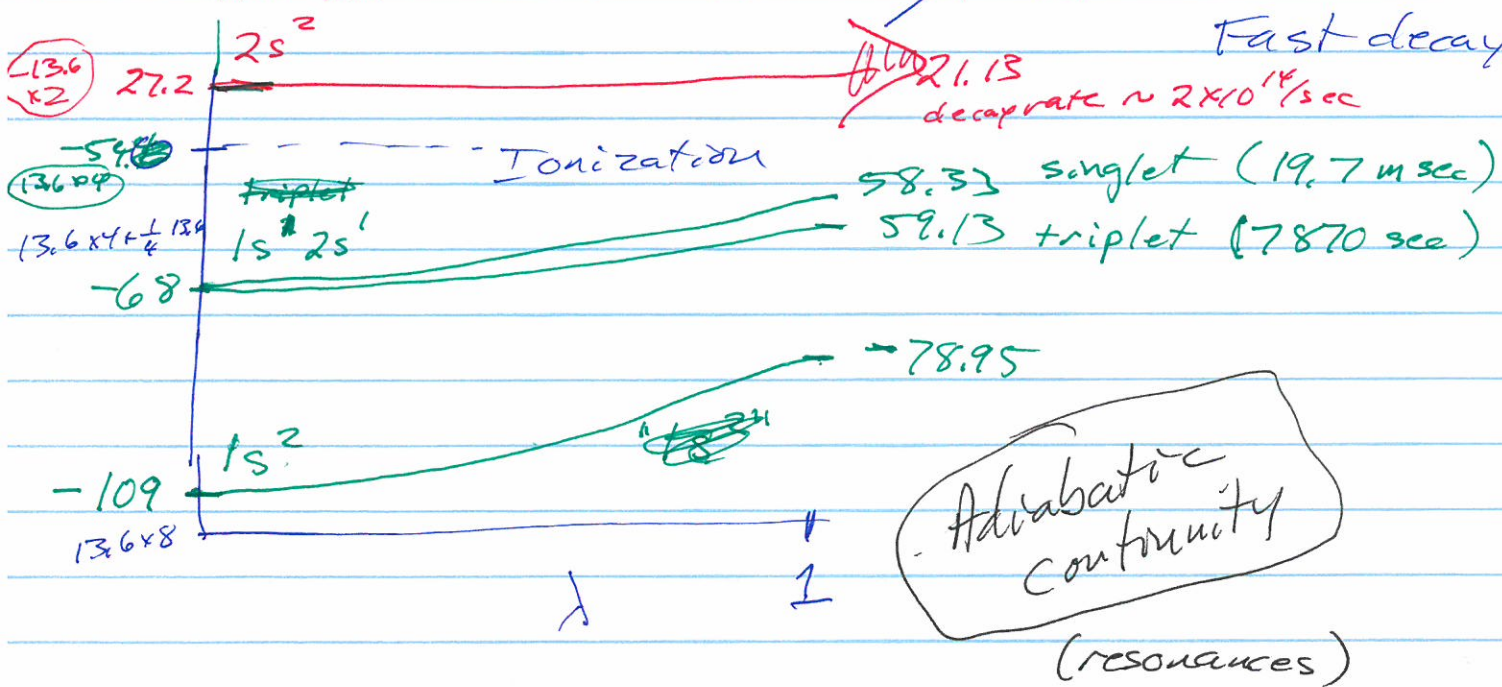 2s²
Fast decay
-13.6 x2
27.2
21.13
decay rate ~ 2x10¹⁴/sec
-54.
13.6x4
Ionization
58.33 singlet (19.7 msec)
triplet
13.6x4+¼ 13.6
1s¹ 2s¹
59.13 triplet (7870 sec)
-68
-78.95
1s²
-109
13.6x8
Adiabatic
continuity
λ
1
(resonances)